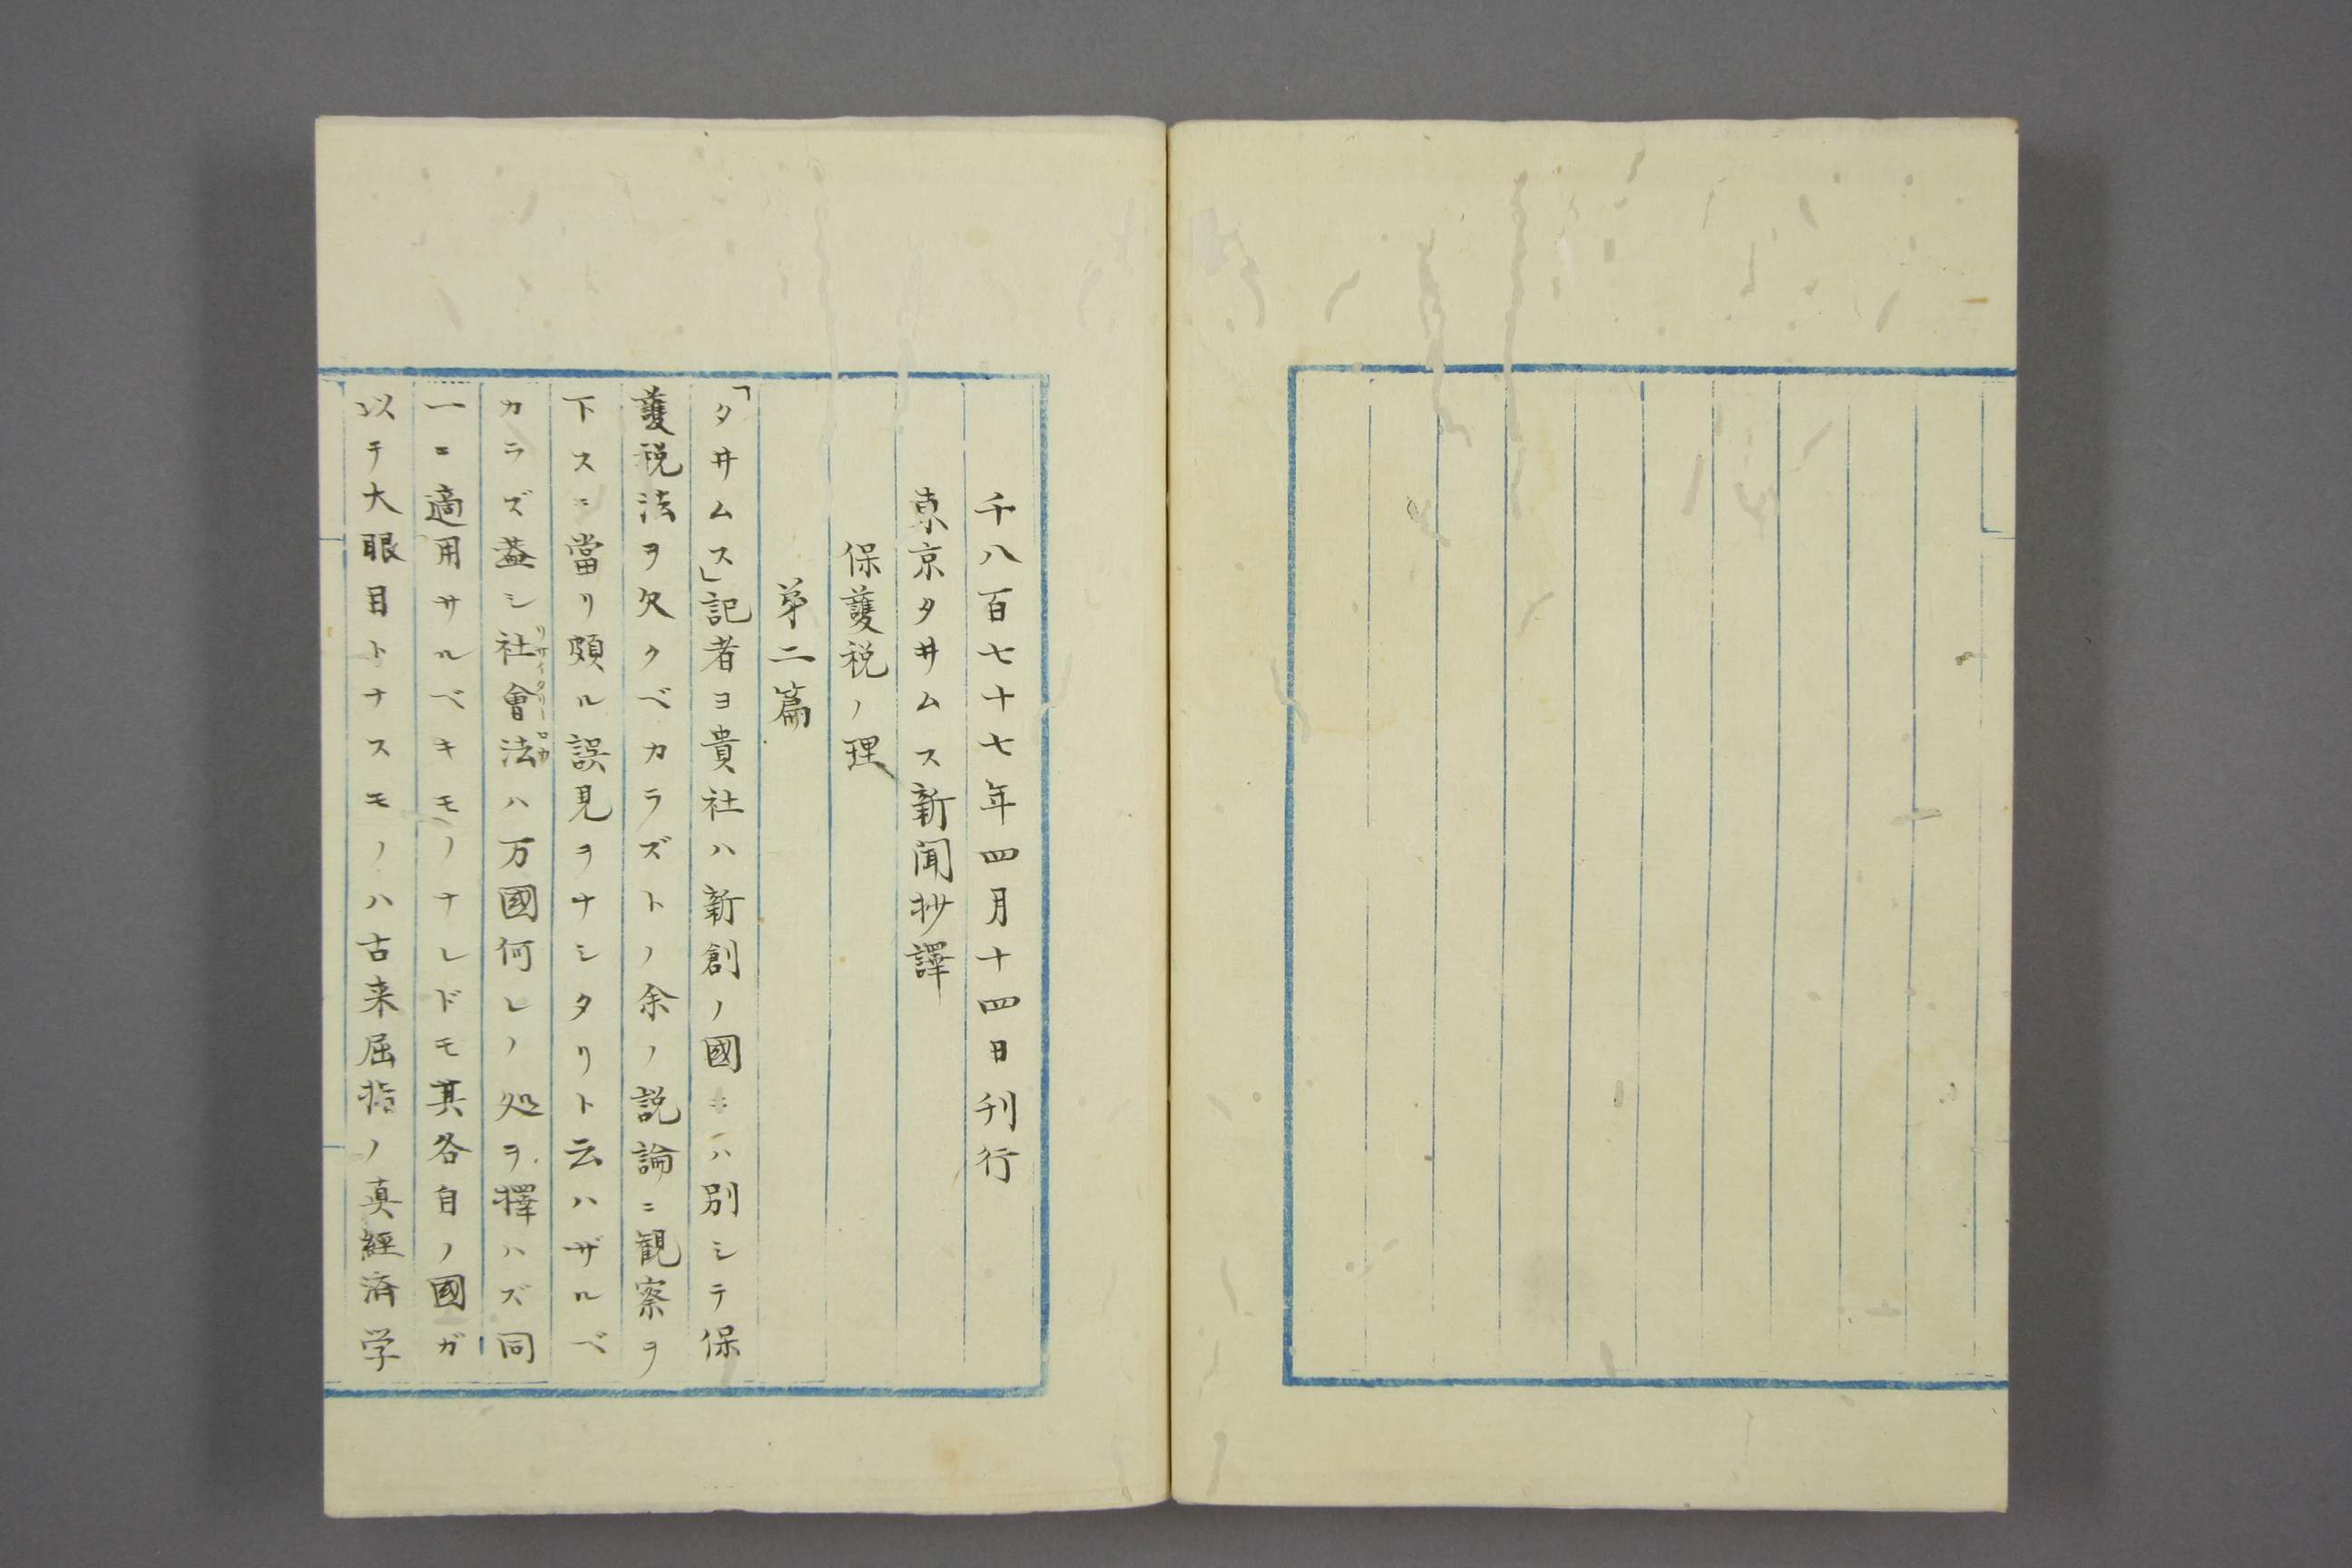 千八百七十七年四月十四日刊行
東京タ井ムス新聞抄譯
保護税ノ理
第二篇
「タ井ムス」記者ヨ貴社ハ新創ノ國ニハ別シテ保
護税法ヲ欠クベカラズトノ余ノ説論ニ観察ヲ
下スニ當リ頗ル誤見ヲナシタリト云ハザルベ
カラズ蓋シ社會法ハ万國何レノ処ヲ擇ハズ同
一ニ適用サルベキモノナレドモ其各自ノ國ガ
以テ大眼目トナスモノハ古来屈指ノ真經済学